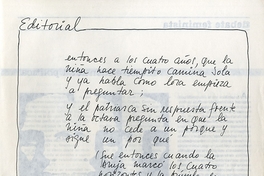 Editorial
entonces a los cuatro años, que la
niña hace tiempito camina sola
y ya habla como lora empieza
a preguntar;
y el patriarca sin respuesta frente
a la octava pregunta en que la
niña no cede a un porque y
sigue un por qué
Sne entonces cuando la
bruja marcó los cuatro